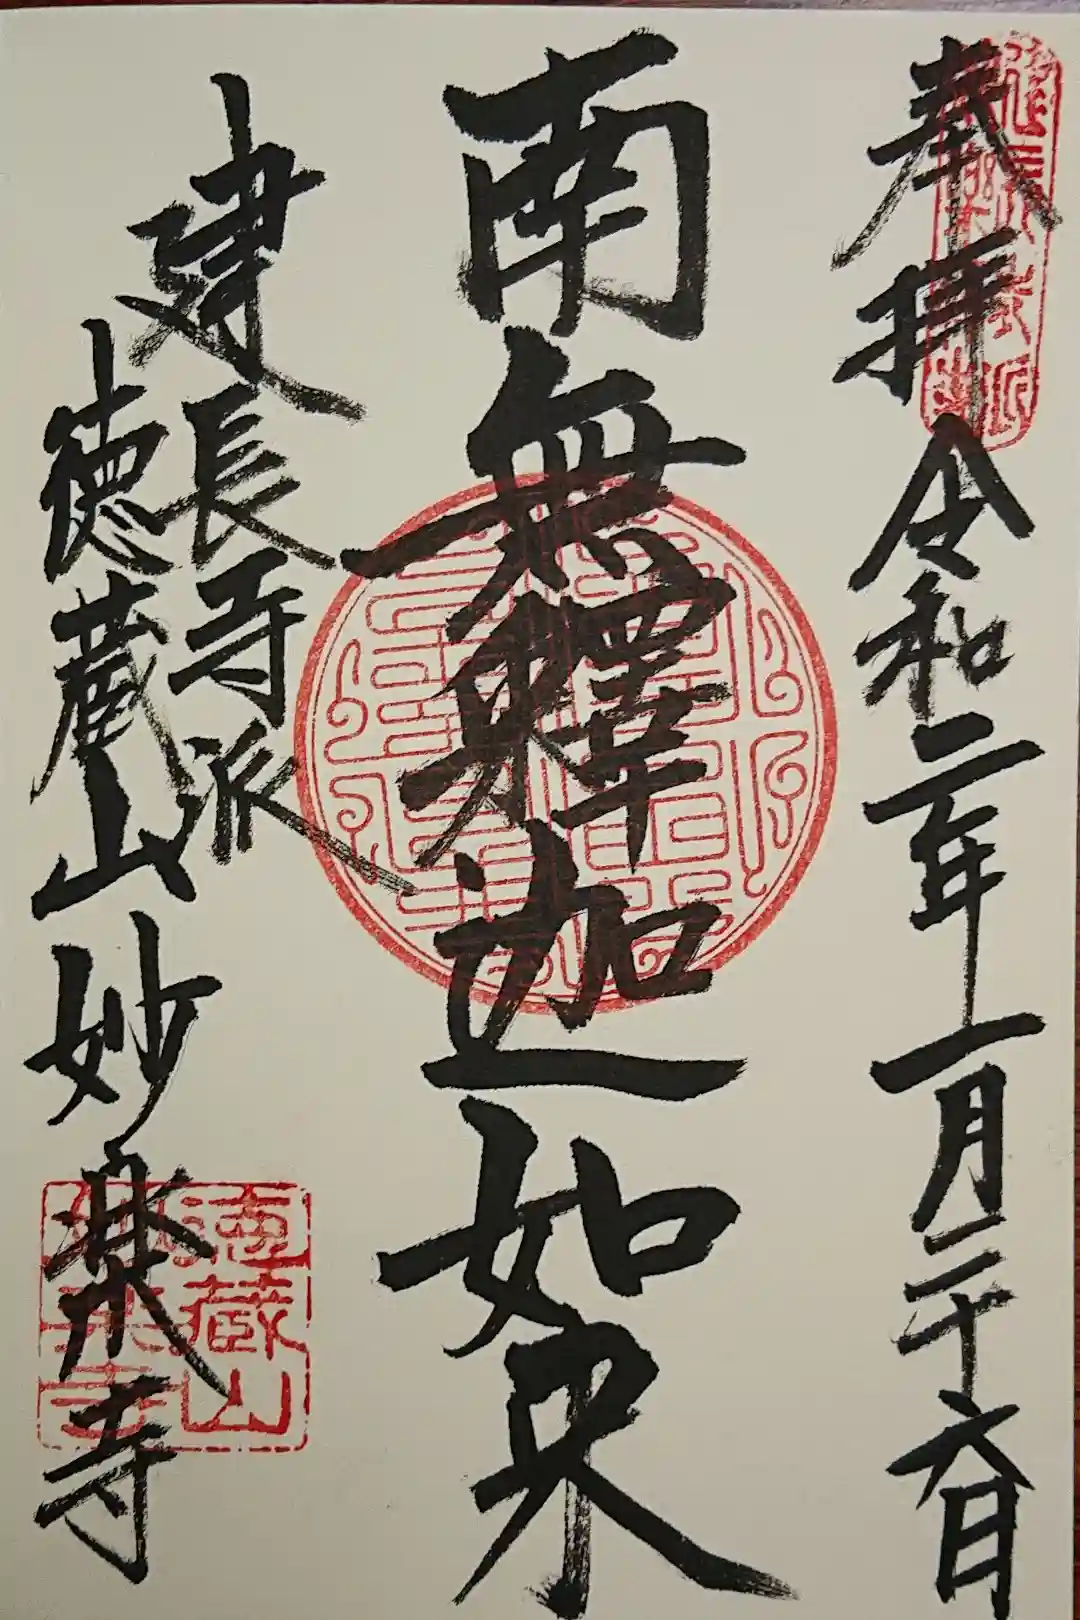 奉拝 令和二年一月二十六日
南無釋迦如来
建長寺派
徳蔵山妙楽寺
徳蔵山
妙楽寺